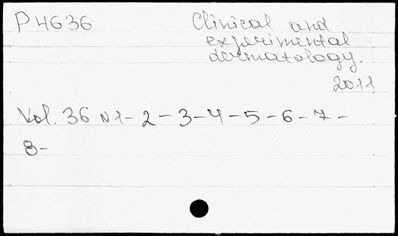 P 4636
Clinical and
experimental
dermatology.
2011
Vol. 36 N1-2-3-4-5-6-7-
8-